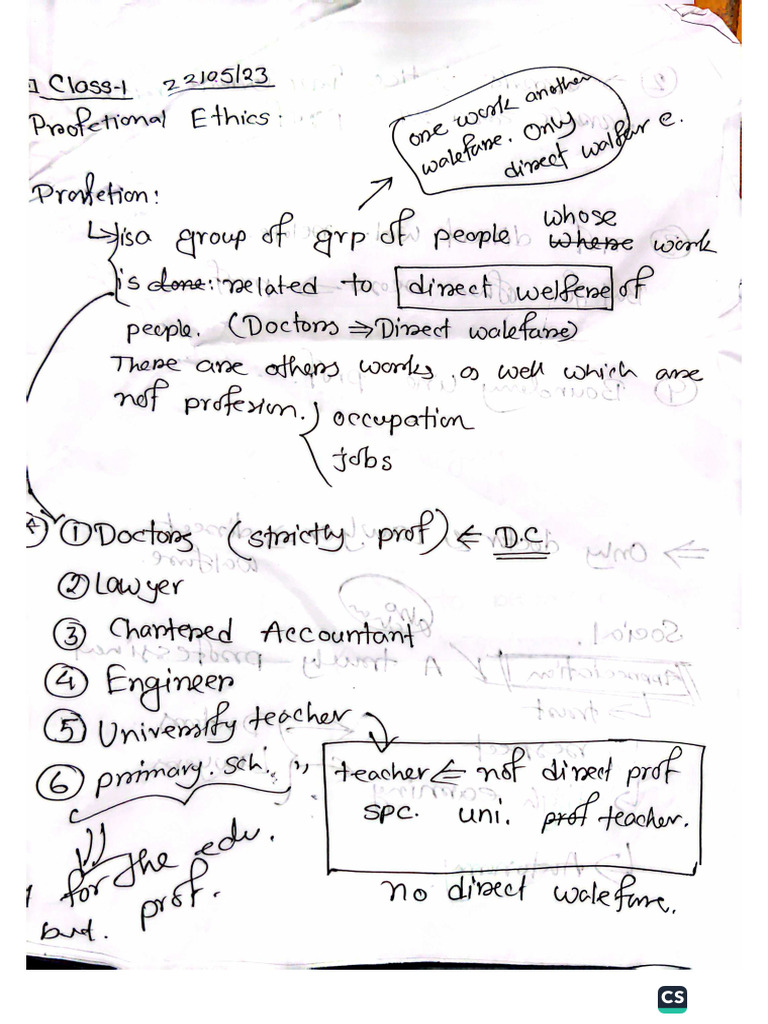 Class-1 22/05/23
Proofetional Ethics:
one work another
walefare. Only
direct walfare.
Profetion:
↳ is a group of grp of people whose where work
is done: related to direct welfere of
people. (Doctors ⇒ Direct walefare)
There are others works as well which are
not profesion. occupation
jobs
① Doctors (strictly prof) ⇐ D.C
② Lawyer
③ Chartered Accountant
④ Engineer
⑤ University teacher
⑥ primary. sch. ,,
teacher ⇐ not direct prof
spc. uni. prof teacher.
for the edu.
prof.
but.
no direct walefare.
CS